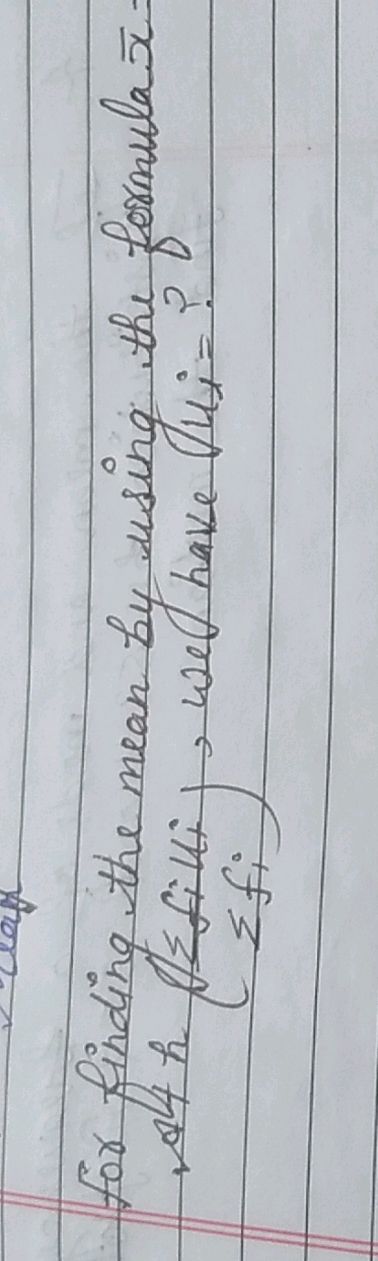 for finding the mean by using the formula x̄ =
A+h (Σfiui
Σfi), we have ui = ?